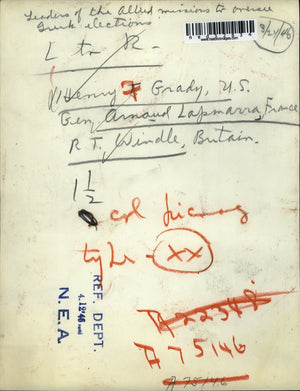 Leaders of the Allied missions to oversee
Greek elections
3/21/46
L to R.
Henry F Grady, U.S.
Gen. Arnaud Lapmarra, France
R. T. Windle, Britain.
1 1/2
col
XX
REF. DEPT.
N. E. A.
A 75146
A 75146